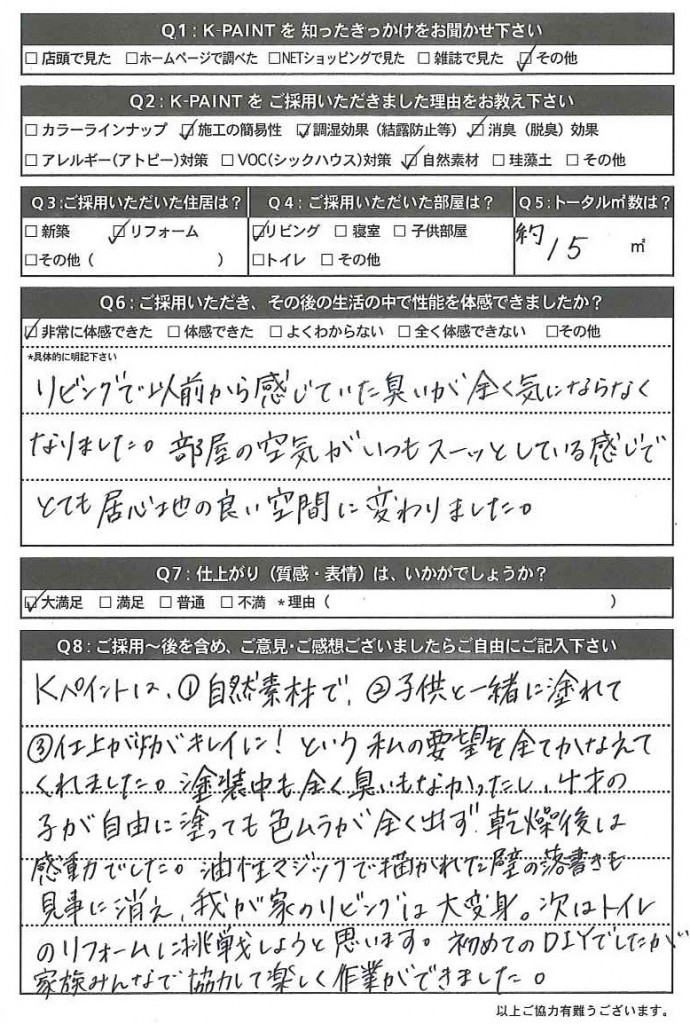 Q1:K-PAINTを 知ったきっかけをお聞かせ下さい
□ 店頭で見た □ホームページで調べた □NETショッピングで見た □ 雑誌で見た ☑その他
Q2:K-PAINTを ご採用いただきました理由をお教え下さい
□ カラーラインナップ ☑施工の簡易性 ☑調湿効果（結露防止等） ☑消臭（脱臭）効果
□ アレルギー(アトピー)対策 □ VOC(シックハウス)対策 ☑自然素材 □ 珪藻土 □ その他
Q3:ご採用いただいた住居は？
□ 新築 ☑リフォーム
□その他（ ）
Q4：ご採用いただいた部屋は？
☑リビング □ 寝室 □ 子供部屋
□トイレ □ その他
Q5:トータル㎡数は？
約15 ㎡
Q6:ご採用いただき、その後の生活の中で性能を体感できましたか？
☑非常に体感できた □ 体感できた □ よくわからない □ 全く体感できない □その他
*具体的に明記下さい
リビングで以前から感じていた臭いが全く気にならなく
なりました。部屋の空気がいつもスーッとしている感じで
とても居心地の良い空間に変わりました。
Q7:仕上がり（質感・表情）は、いかがでしょうか？
☑大満足 □ 満足 □ 普通 □ 不満 *理由（ ）
Q8:ご採用〜後を含め、ご意見・ご感想ございましたらご自由にご記入下さい
Kペイントは、①自然素材で、②子供と一緒に塗れて
③仕上がりがキレイに！という私の要望を全てかなえて
くれました。塗装中も全く臭いもなかったし、4才の
子が自由に塗っても色ムラが全く出ず、乾燥後は
感動でした。油性マジックで描かれた壁の落書きも
見事に消え、我が家のリビングは大変身。次はトイレ
のリフォームに挑戦しようと思います。初めてのDIYでしたが
家族みんなで協力して楽しく作業ができました。
以上ご協力有難うございます。